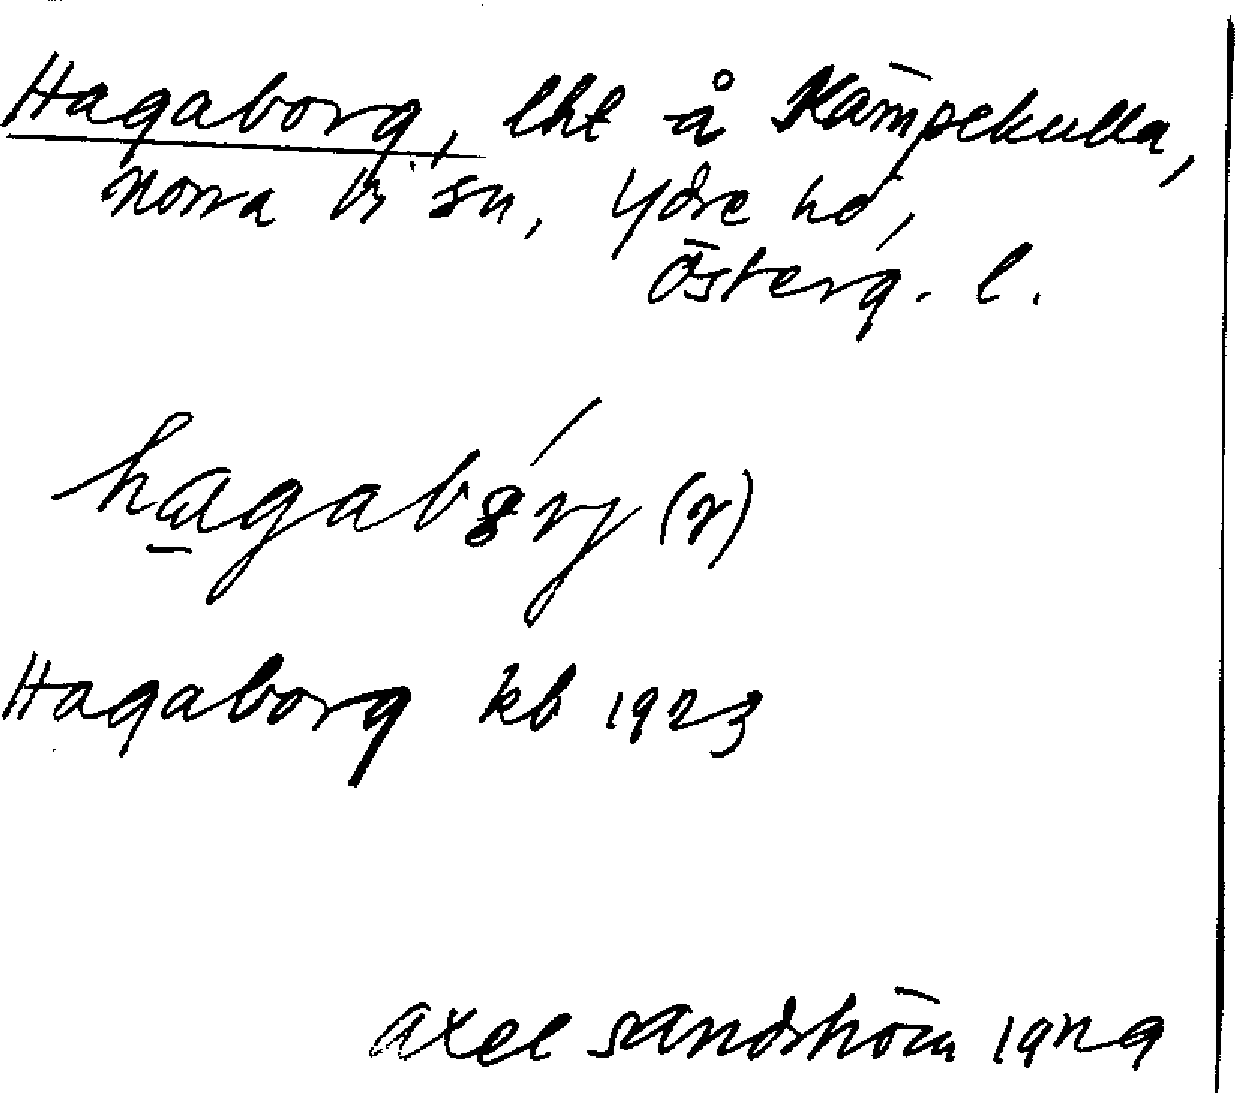 Hagaborg, lht å Kämpekulla,
Norra Vi sn, Ydre hd,
Österg. l.
hagabȯrj (r)
Hagaborg kb 1923
Axel Sandström 1929